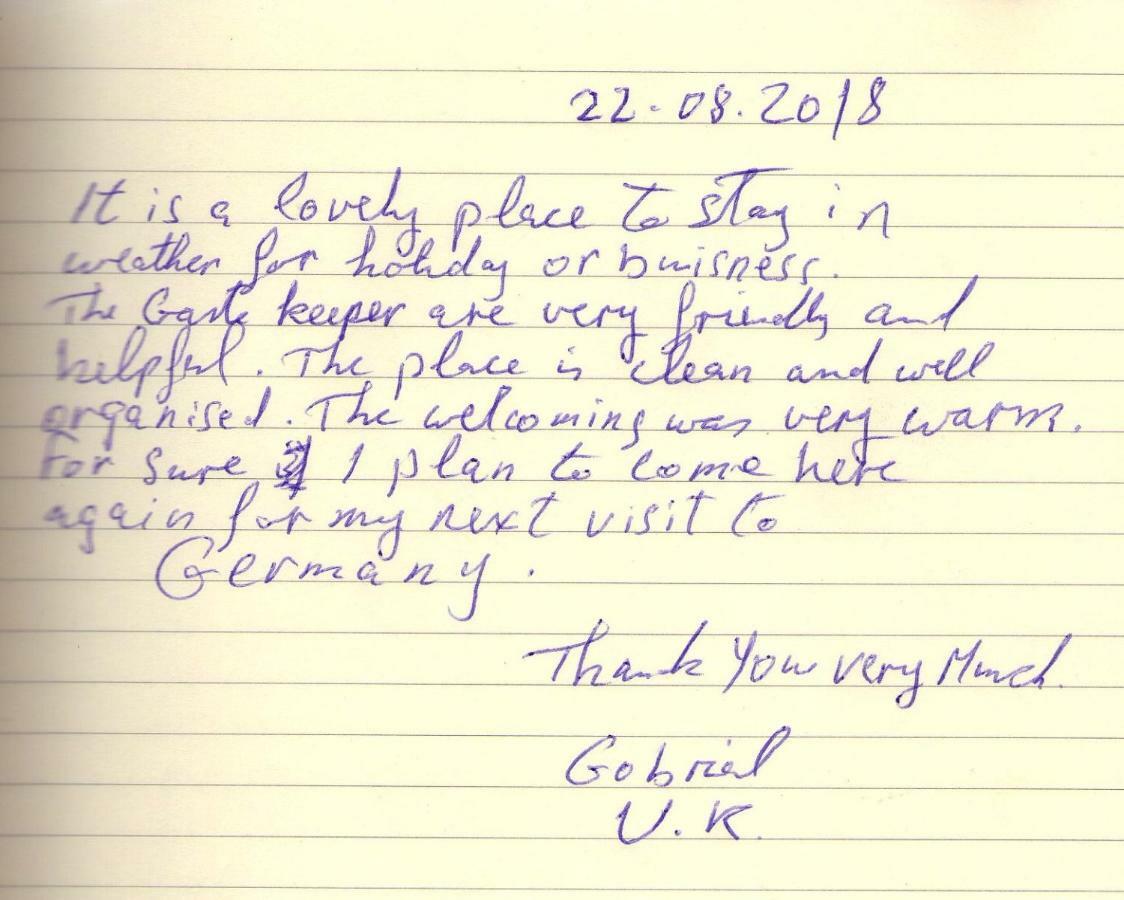 22-08.2018
It is a lovely place to stay in
weather for holiday or buisness.
The Gaste keeper are very friendly and
helpful. The place is clean and well
organised. The welcoming was very warm.
For sure I plan to come here
again for my next visit to
Germany.
Thank You very Much.
Gobriel
U.K.